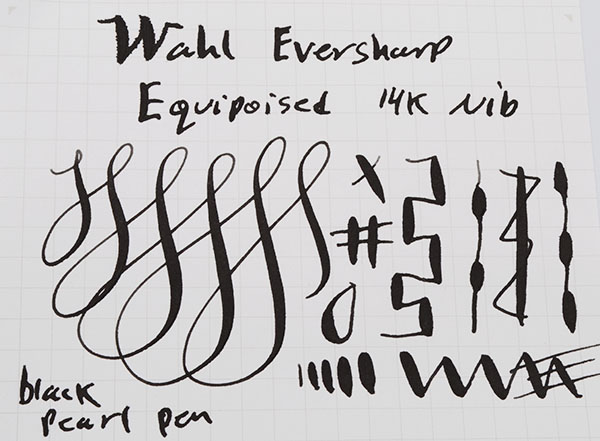 Wahl Eversharp
Equipoised 14K Nib
black
pearl pen